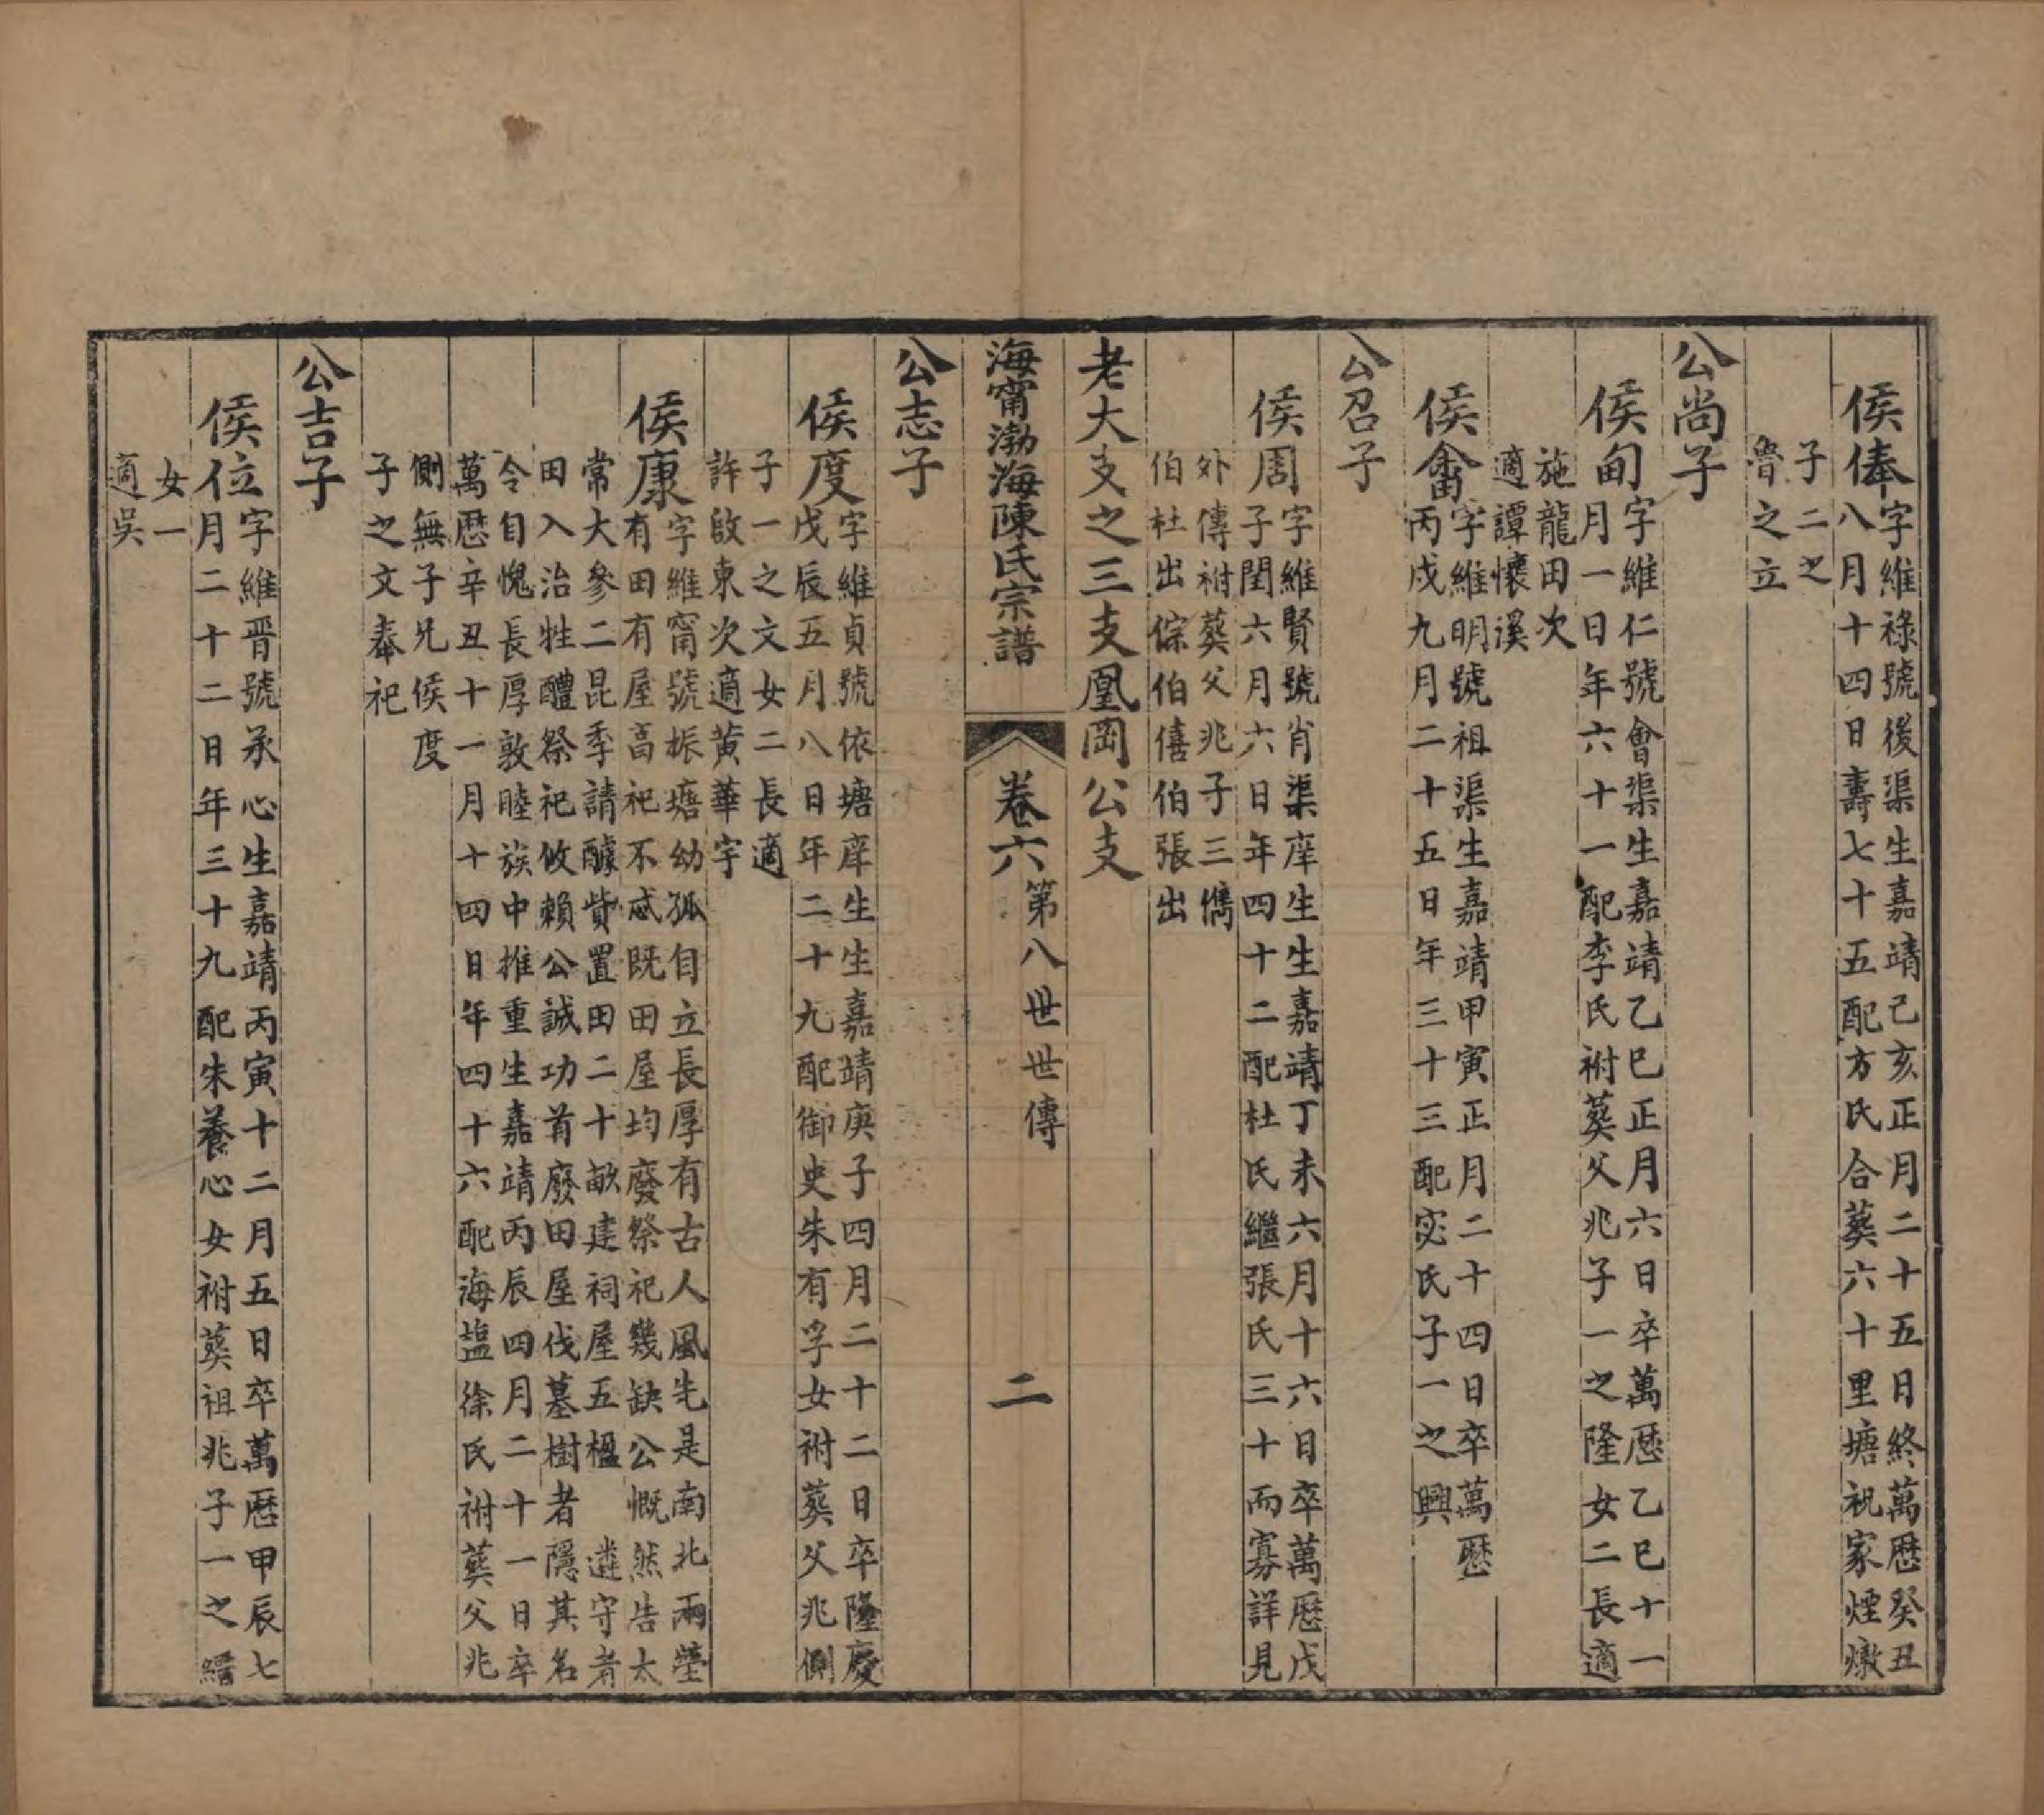 侯俸
字維祿號後渠生嘉靖己亥正月二十五日終萬厯癸丑
八月十四日壽七十五配方氏合葬六十里塘祝家煙墩
子二之
魯之立
公尚子
侯甸
字維仁號會渠生嘉靖乙巳正月六日卒萬厯乙巳十一
月一日年六十一配李氏祔葬父兆子一之隆女二長適
施龍田次
適譚懷溪
侯畬
字維明號祖渠生嘉靖甲寅正月二十四日卒萬厯
丙戌九月二十五日年三十三配宓氏子一之興
公召子
侯周
字維賢號肖渠庠生生嘉靖丁未六月十六日卒萬厯戊
子閏六月六日年四十二配杜氏繼張氏三十而寡詳見
外傳祔葬父兆子三儁
伯杜出倧伯僖伯張出
老大支之三支鳳岡公支
海甯渤海陳氏宗譜
卷六
第八世世傳
二
公志子
侯度
字維貞號依塘庠生生嘉靖庚子四月二十二日卒隆慶
戊辰五月八日年二十九配御史朱有孚女祔葬父兆側
子一之文女二長適
許啟東次適黄華宇
侯康
字維甯號振塘幼孤自立長厚有古人風先是南北兩塋
有田有屋畐祀不忒既田屋均廢祭祀幾缺公慨然告太
常大參二昆季請醵貲置田二十畝建祠屋五楹 遴守者
田入治牲醴祭祀攸賴公誠功首廢田屋伐墓樹者隱其名
令自愧長厚敦睦族中推重生嘉靖丙辰四月二十一日卒
萬厯辛丑十一月十四日年四十六配海塩徐氏祔葬父兆
側無子兄侯度
子之文奉祀
公吉子
侯位
字維晋號承心生嘉靖丙寅十二月五日卒萬厯甲辰七
月二十二日年三十九配朱養心女祔葬祖兆子一之縉
女一
適吳